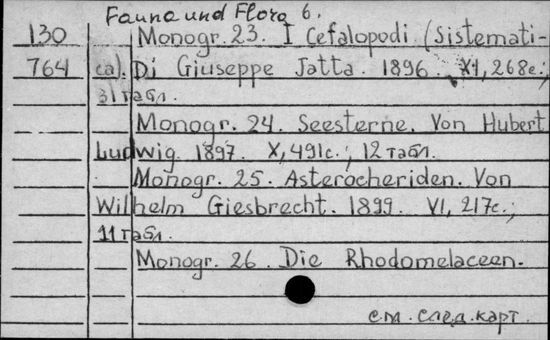 Fauna und Flora 6.
130 Monogr. 23. I Cefalopodi (Sistemati-
764 ca). Di Giuseppe Jatta. 1896. XI, 268с.;
31 табл.
Monogr. 24. Seesterne. Von Hubert
Ludwig. 1897. X, 491с.; 12 табл.
Monogr. 25. Asterocheriden. Von
Wilhelm Giesbrecht. 1899. VI, 217с.;
11 табл.
Monogr. 26 Die Rhodomelaceen.
см. след. карт.